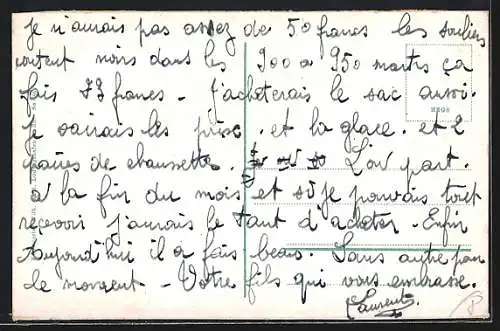 Je n'aurais pas assez de 50 francs les souliers
coutent moins dans les 900 a 950 mais ça
fais 73 francs - J'acheterais le sac aussi.
Je saurais les prise. et la glace. et 2
paires de chaussettes. L'on part.
a la fin du mois et si je pouvais tout
recevoir j'aurais le tant d'acheter. Enfin
Aujourd'hui il a fais beau. Sans autre pour
le moment - Votre fils qui vous embrasse.
Laurent.